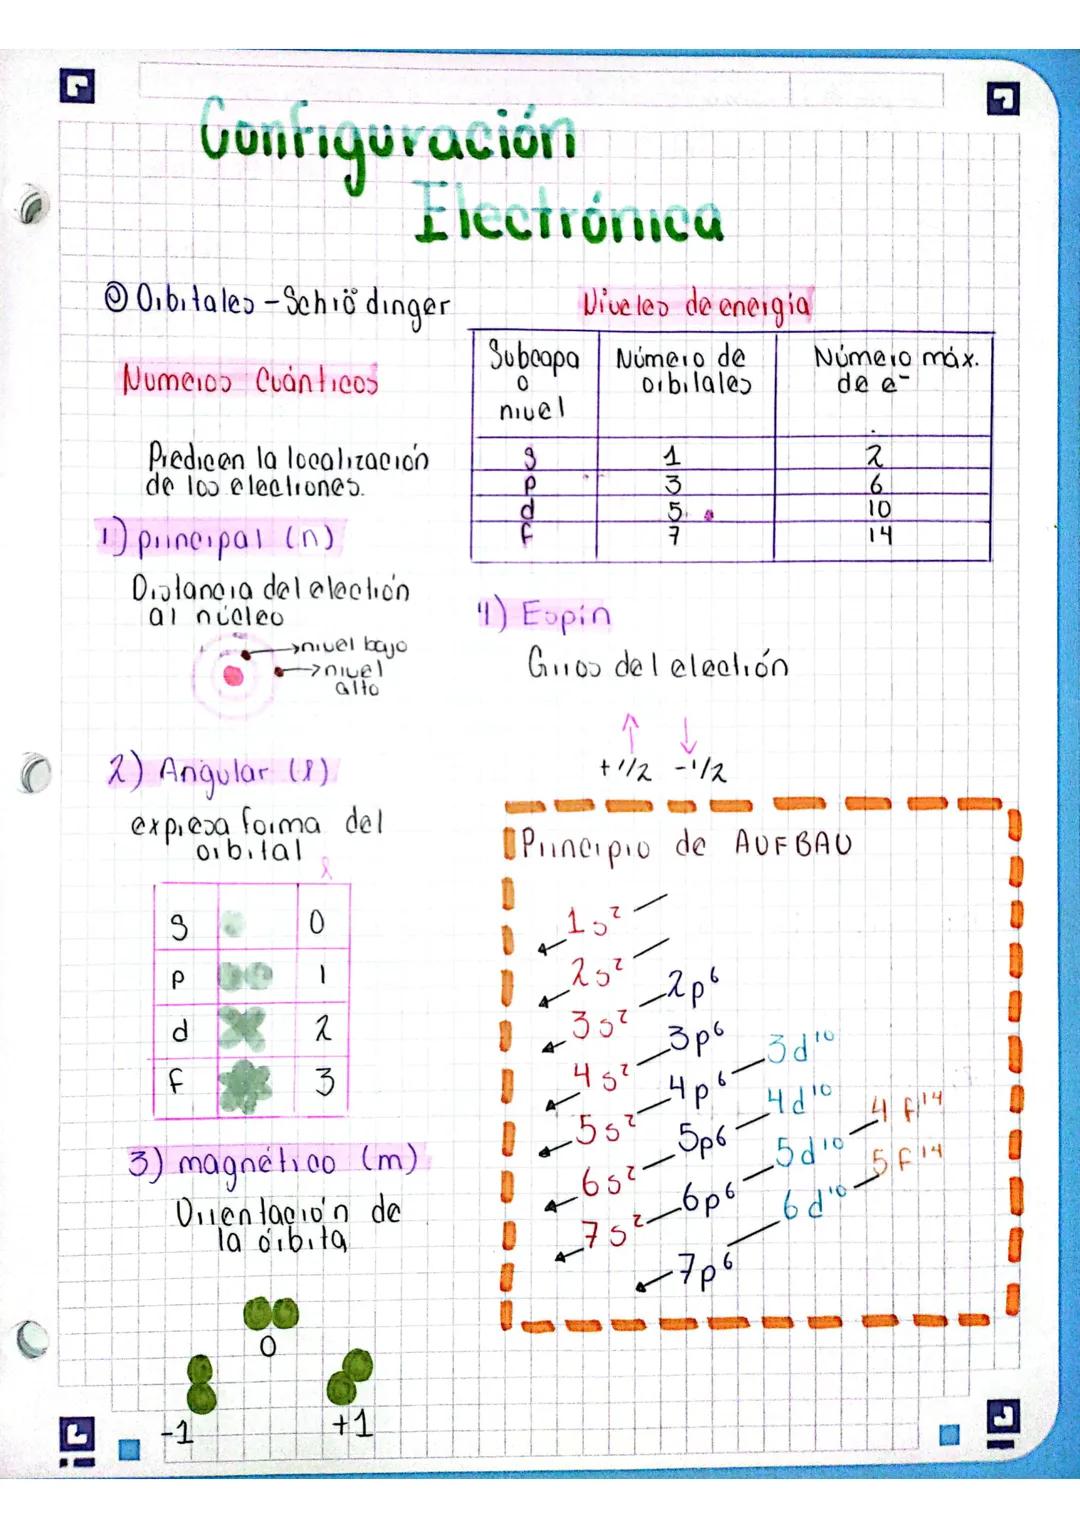 Configuración
Electrónica
Orbitales - Schrödinger
Números Cuánticos
Predicen la localización
de los electrones.
1) principal (n)
Distancia del electrón
al núcleo
→nivel bajo
→nivel
alto
2) Angular (l)
expresa forma del
orbital
l
s 0
p 1
d 2
f 3
3) magnético (m)
Orientación de
la órbita
0
-1 +1
Niveles de energía
Subcapa
o
nivel
Número de
orbitales
Número máx.
de e⁻
s 1 2
p 3 6
d 5 10
f 7 14
4) Espín
Giros del electrón
↑ ↓
+1/2 -1/2
Principio de AUFBAU
1s²
2s² 2p⁶
3s² 3p⁶ 3d¹⁰
4s² 4p⁶ 4d¹⁰ 4f¹⁴
5s² 5p⁶ 5d¹⁰ 5f¹⁴
6s² 6p⁶ 6d¹⁰
7s² 7p⁶